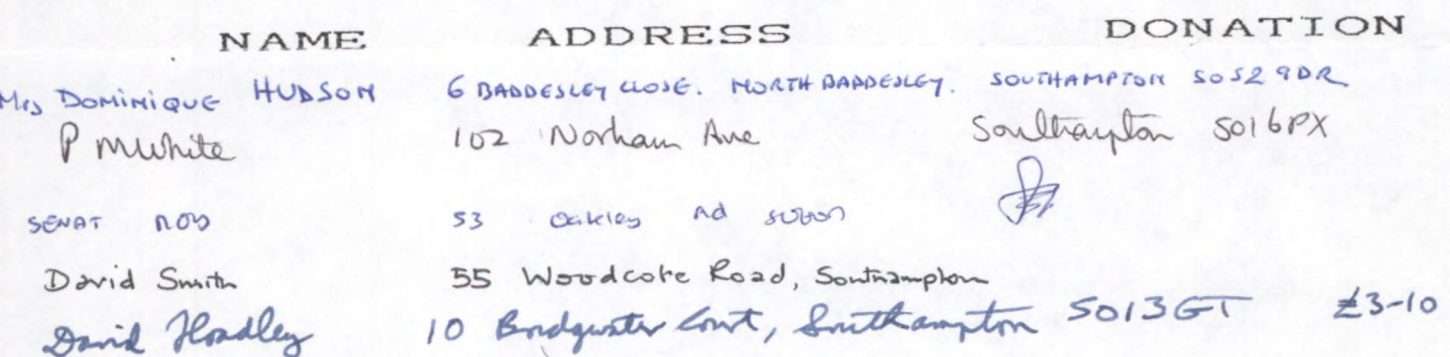 NAME ADDRESS DONATION
Mrs DOMINIQUE HUDSON 6 BADDESLEY CLOSE. NORTH BADDESLEY. SOUTHAMPTON SO52 9DR
P M White 102 Norham Ave Southampton SO16PX
53 Oakley Rd
David Smith 55 Woodcote Road, Southampton
David Hoadley 10 Bridgwater Court, Southampton SO13GT £3-10